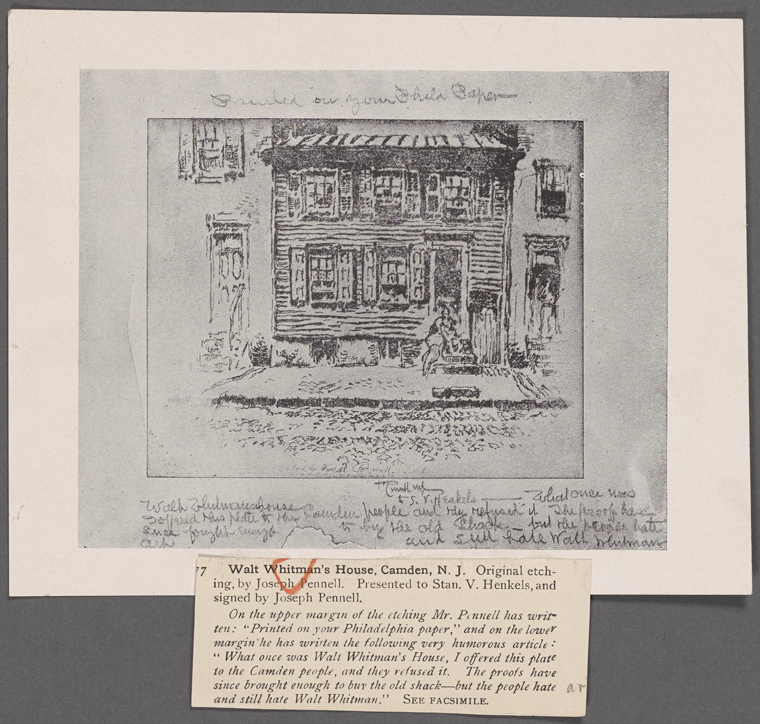 Printed on your Phila Paper
to S. V. Henkels
What once was
Walt Whitmans house
I offered this plate to the Camden people and they refused it The proofs have
since brought enough to buy the old Shack — but the people hate
and still hate Walt Whitman
77 Walt Whitman's House, Camden, N. J. Original etch-
ing, by Joseph Pennell. Presented to Stan. V. Henkels, and
signed by Joseph Pennell.
On the upper margin of the etching Mr. Pennell has writ-
ten: "Printed on your Philadelphia paper," and on the lower
margin he has written the following very humorous article:
"What once was Walt Whitman's House, I offered this plate
to the Camden people, and they refused it. The proofs have
since brought enough to buy the old shack—but the people hate
and still hate Walt Whitman." See facsimile.